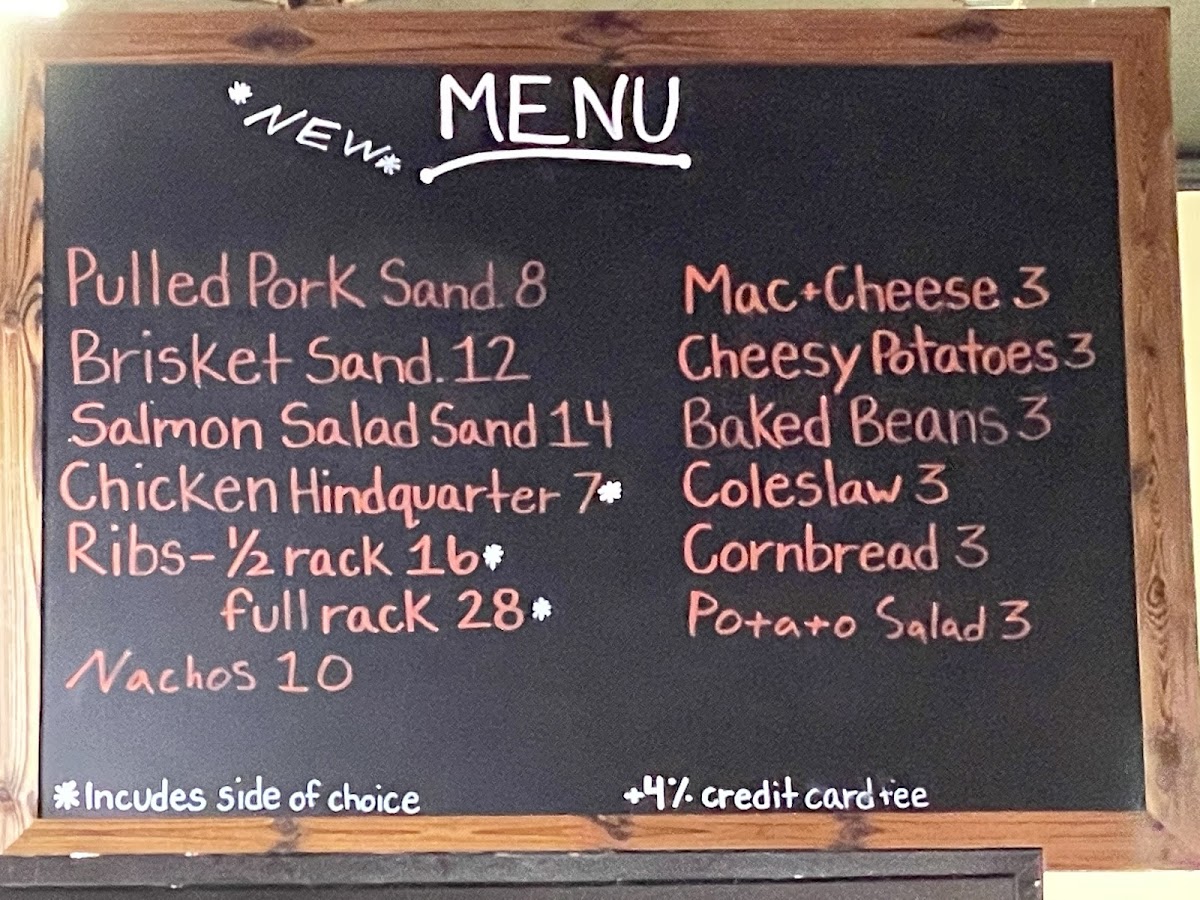 *NEW*
MENU
Pulled Pork Sand. 8
Brisket Sand. 12
Salmon Salad Sand 14
Chicken Hindquarter 7*
Ribs- ½ rack 16*
full rack 28*
Nachos 10
Mac+Cheese 3
Cheesy Potatoes 3
Baked Beans 3
Coleslaw 3
Cornbread 3
Potato Salad 3
*Incudes side of choice
+4% credit card fee